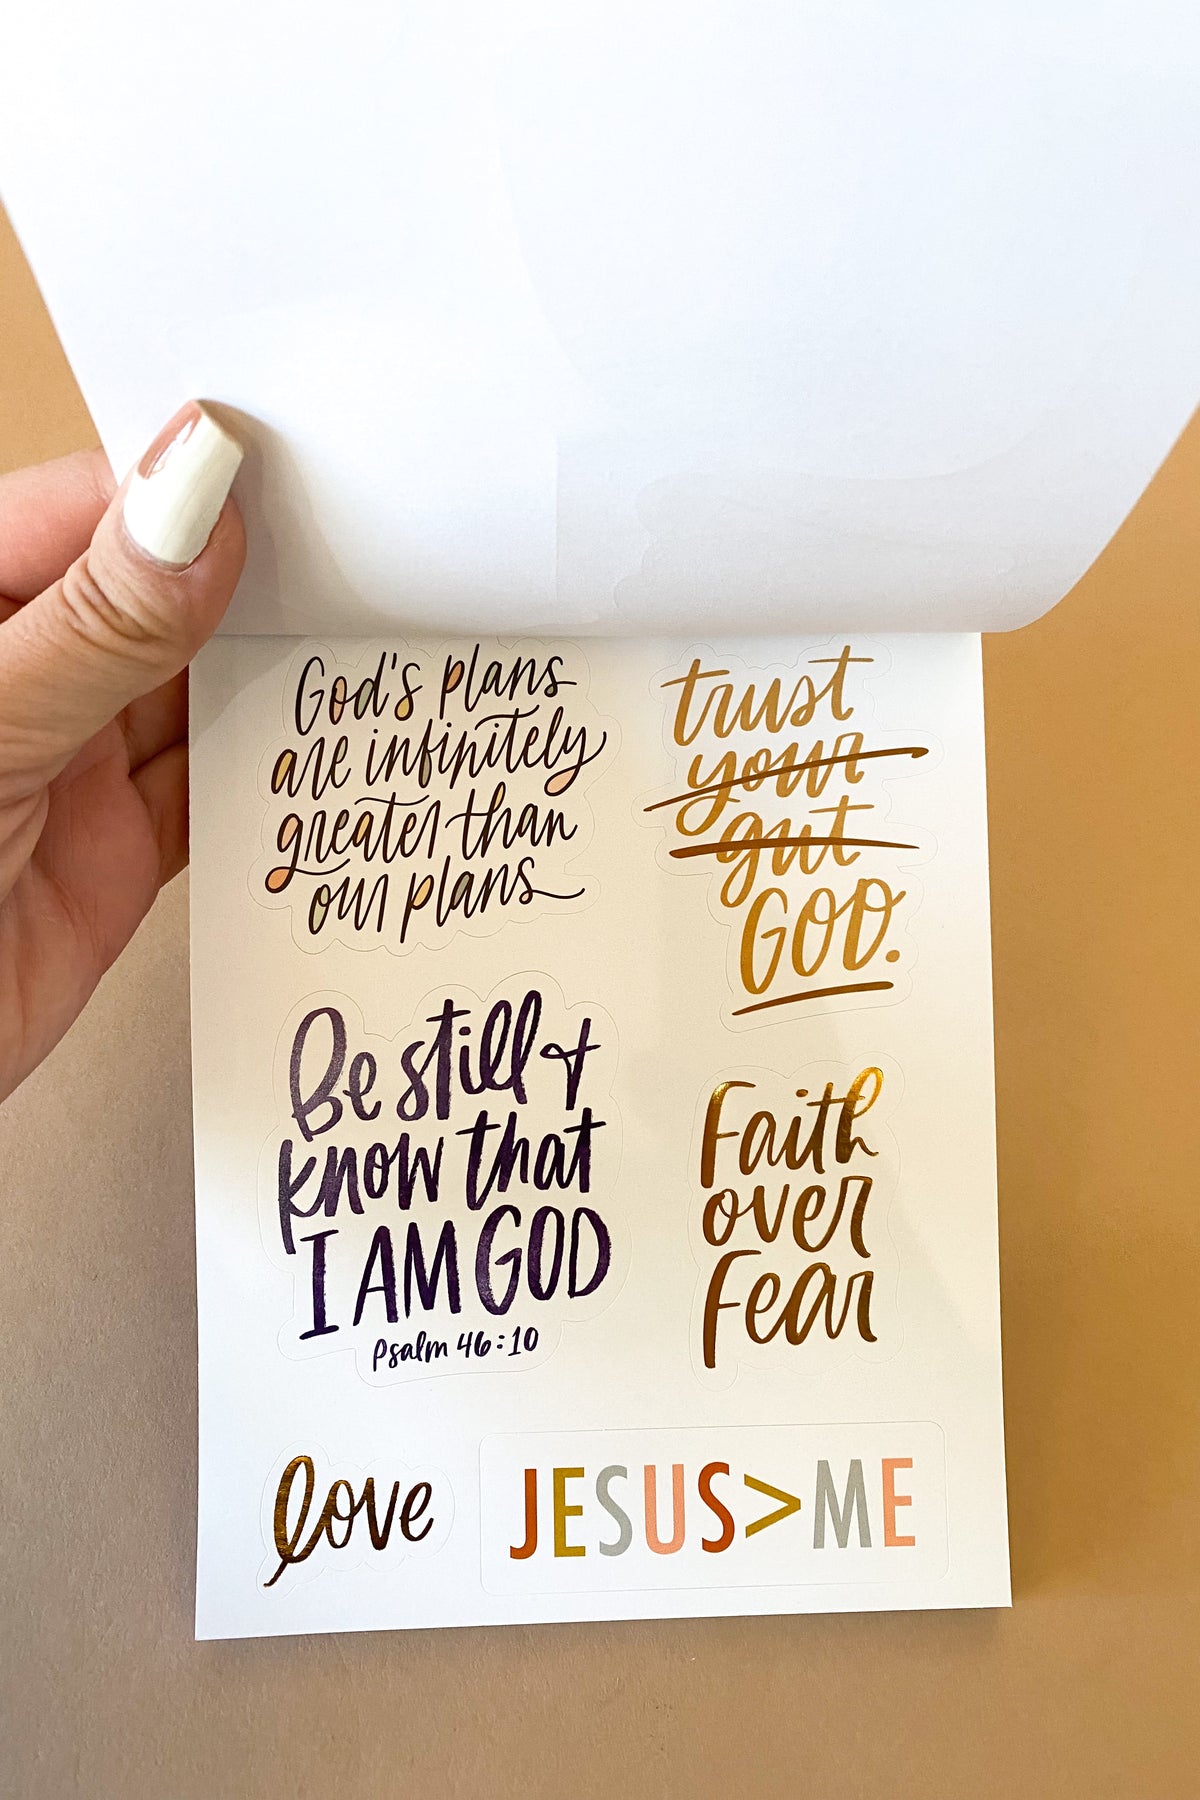 God's plans
are infinitely
greater than
our plans
trust
your
gut
GOD.
Be still +
know that
I AM GOD
Psalm 46:10
Faith
over
Fear
love
JESUS>ME